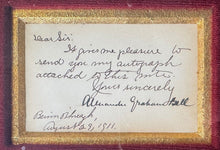 Dear Sir:
It gives me pleasure to
send you my autograph
attached to this note.
Yours sincerely
Alexander Graham Bell
Beinn Bhreagh,
August 29, 1911.